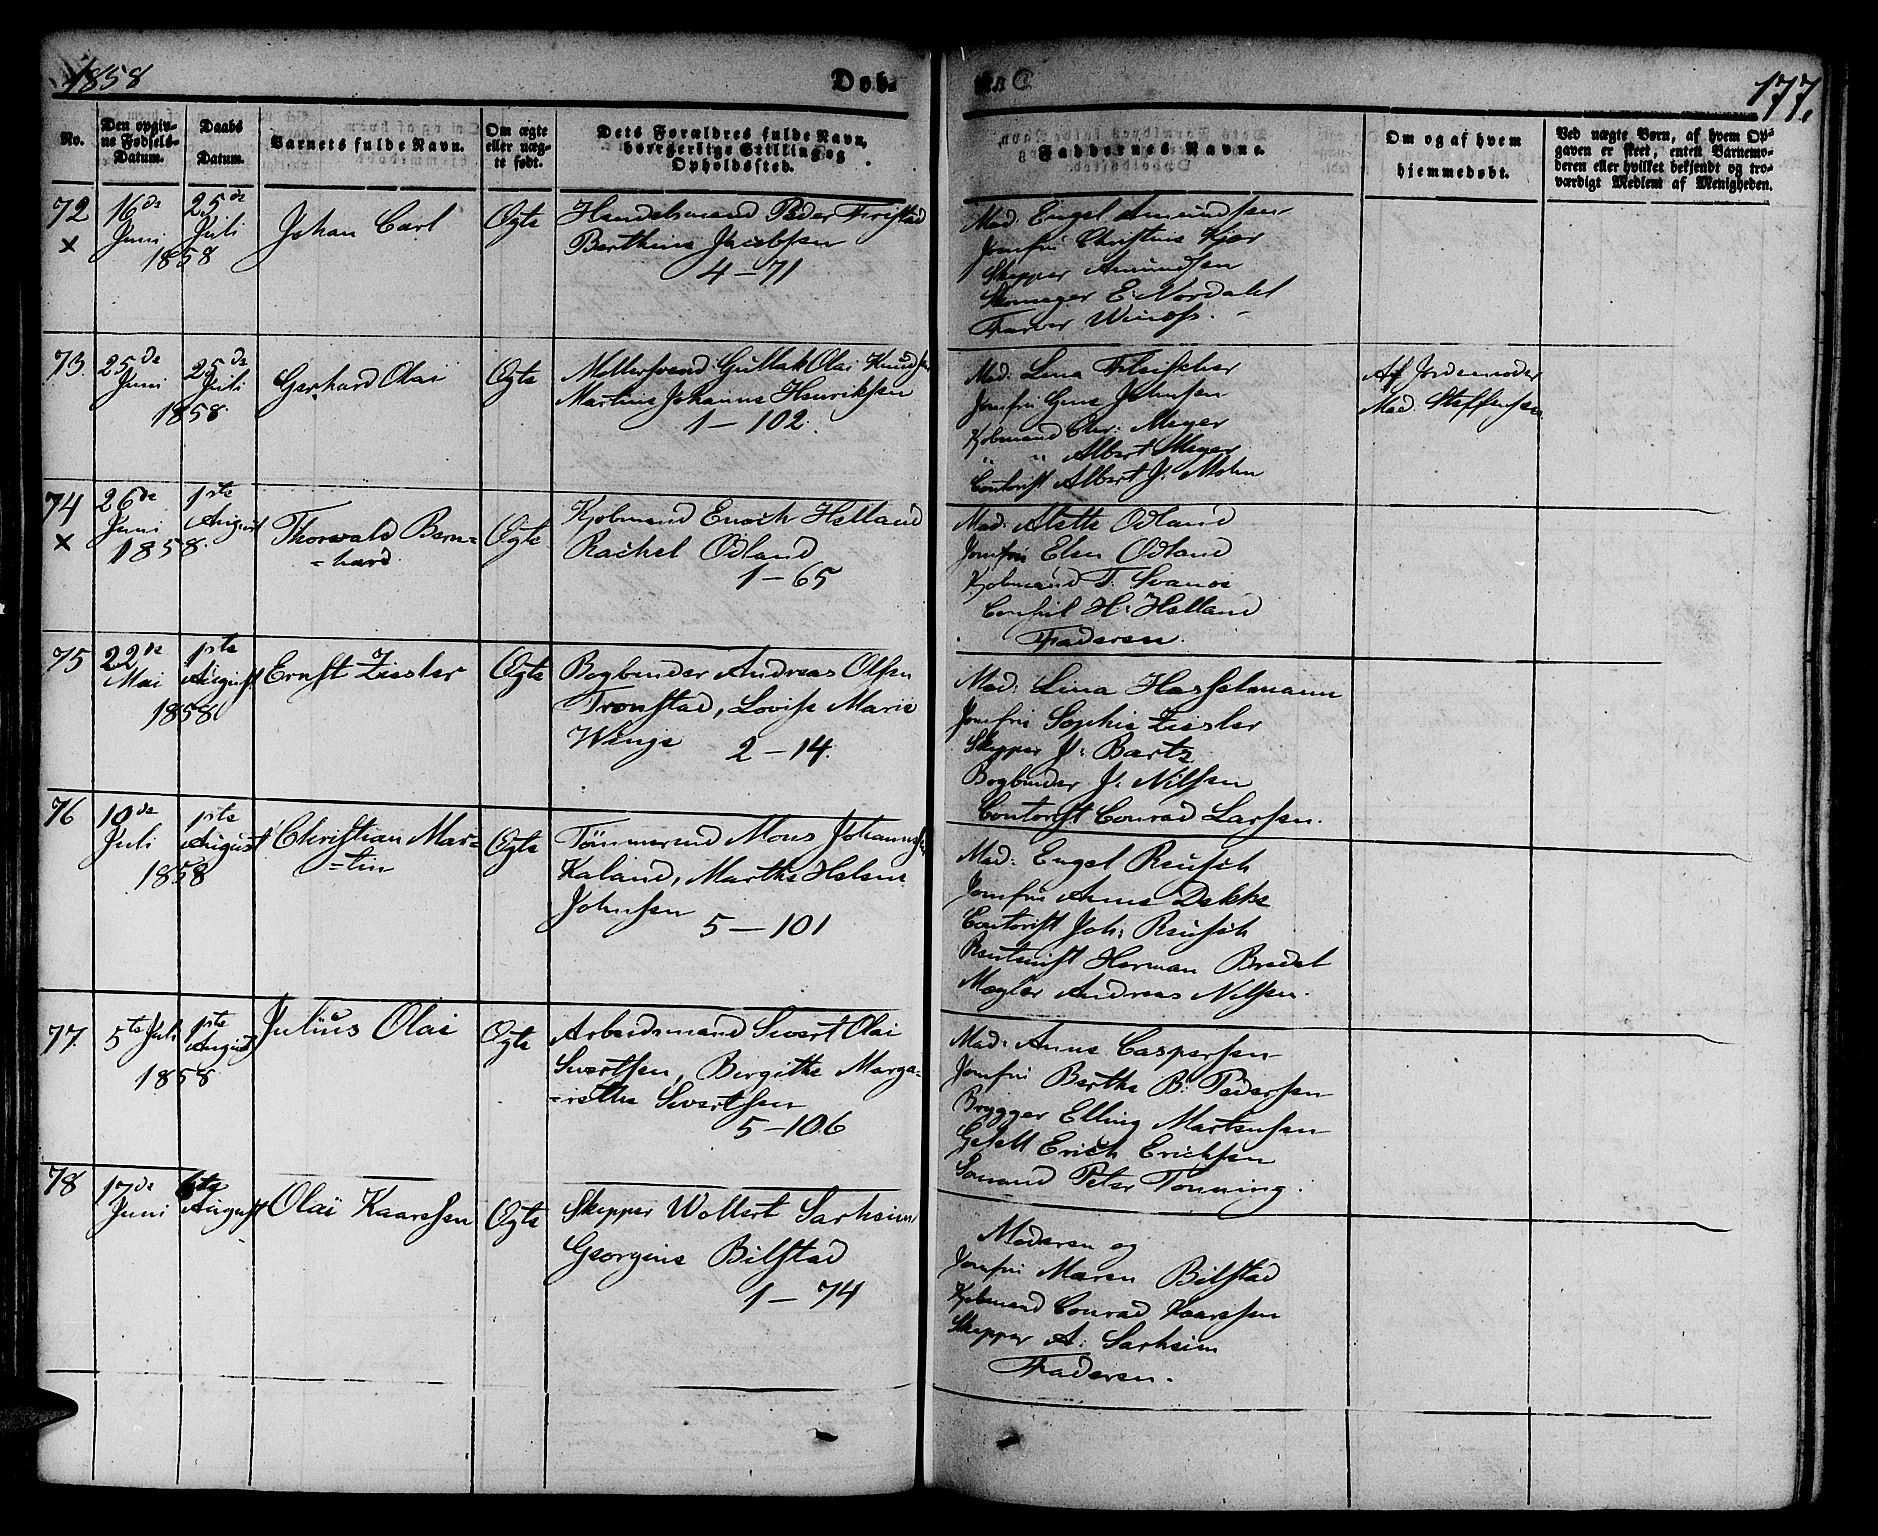 1858
Døb-
177.
No.
Den opgiv-
ne Fødsels-
Datum.
Daabs
Datum.
Barnets fulde Navn.
Om ægte
eller uæg-
te født.
Dets Forældres fulde Navn,
borgerlige Stilling og
Opholdssted.
Faddernes Navne.
Om og af hvem
hjemmedøbt.
Ved uægte Børn, af hvem Op-
gaven er skeet, enten Barnemo-
deren eller hvilket bekjendt og tro-
værdigt Medlem af Menigheden.
72
×
16de
Juni
25de
Juli
1858
Johan Carl
Ægte
Handelsmand Peder Fristad
Berthine Jacobsen
4-71
Mad: Engel Amundsen
Jomfru Christine Kjær
Skipper Amundsen
Skomager E. Nordahl
Farver
73.
25de
Juni
25de
Juli
1858.
Gerhard Olai
Ægte
Møllersvend Gullak Olai Knudsen
Martine Johanne Henriksen
1-102.
Mad: Lina Fleischer
Jomfru Gine Johnsen
Kjøbmand Chr: Meyer
" " Albert Meyer
Contorist Albert J. Mohn
Af Jordemoder
Mad. Steffensen
74
×
26de
Juni
1ste
August
1858.
Thorvald Bern=
=hard.
Ægte
Kjøbmand Enoch Helland
Rachel Odland
1-65
Mad: Alette Odland
Jomfru Elen Odland
Kjøbmand T. Svanøe
Consul H: Helland
Faderen.
75
22de
Mai
1ste
August
1858
Ernst Ziesler
Ægte
Bogbinder Andreas Olsen
Tronstad, Lovise Marie
Winje 2-14.
Mad: Lina Hasselmann
Jomfru Sophie Ziesler
Skipper J: Bartz
Bogbinder J. Nilsen
Contorist Conrad Larsen.
76
10de
Juli
1ste
August
1858
Christian Mar=
=tin
Ægte
Tømmermd Mons Johannes
Kaland, Marthe Helene
Johnsen
5-101
Mad: Engel Reusch
Jomfru Anna Dekke
Contorist Joh: Reusch
Rentenist Herman Bredal
Mægler Andreas Nilsen.
77.
5te Juli
1ste
August
1858
Julius Olai
Ægte
Arbeidsmand Sivert Olai
Sivertsen, Birgithe Marga=
=rethe Sivertsen
5-106
Mad: Anne Caspersen
Jomfru Berthe B: Pedersen
Brygger Elling Martensen
Gesell Erich Erichsen
Sømand Peter Tønning.
78
17de
Juni
6te
August
Olai Kaarssen
Ægte
Skipper Wollert Sarheim
Georgine Bilstad
1-74
Moderen og
Jomfru Maren Bilstad
Kjøbmand Conrad Kaarssen
Skipper A: Sarheim
Faderen.